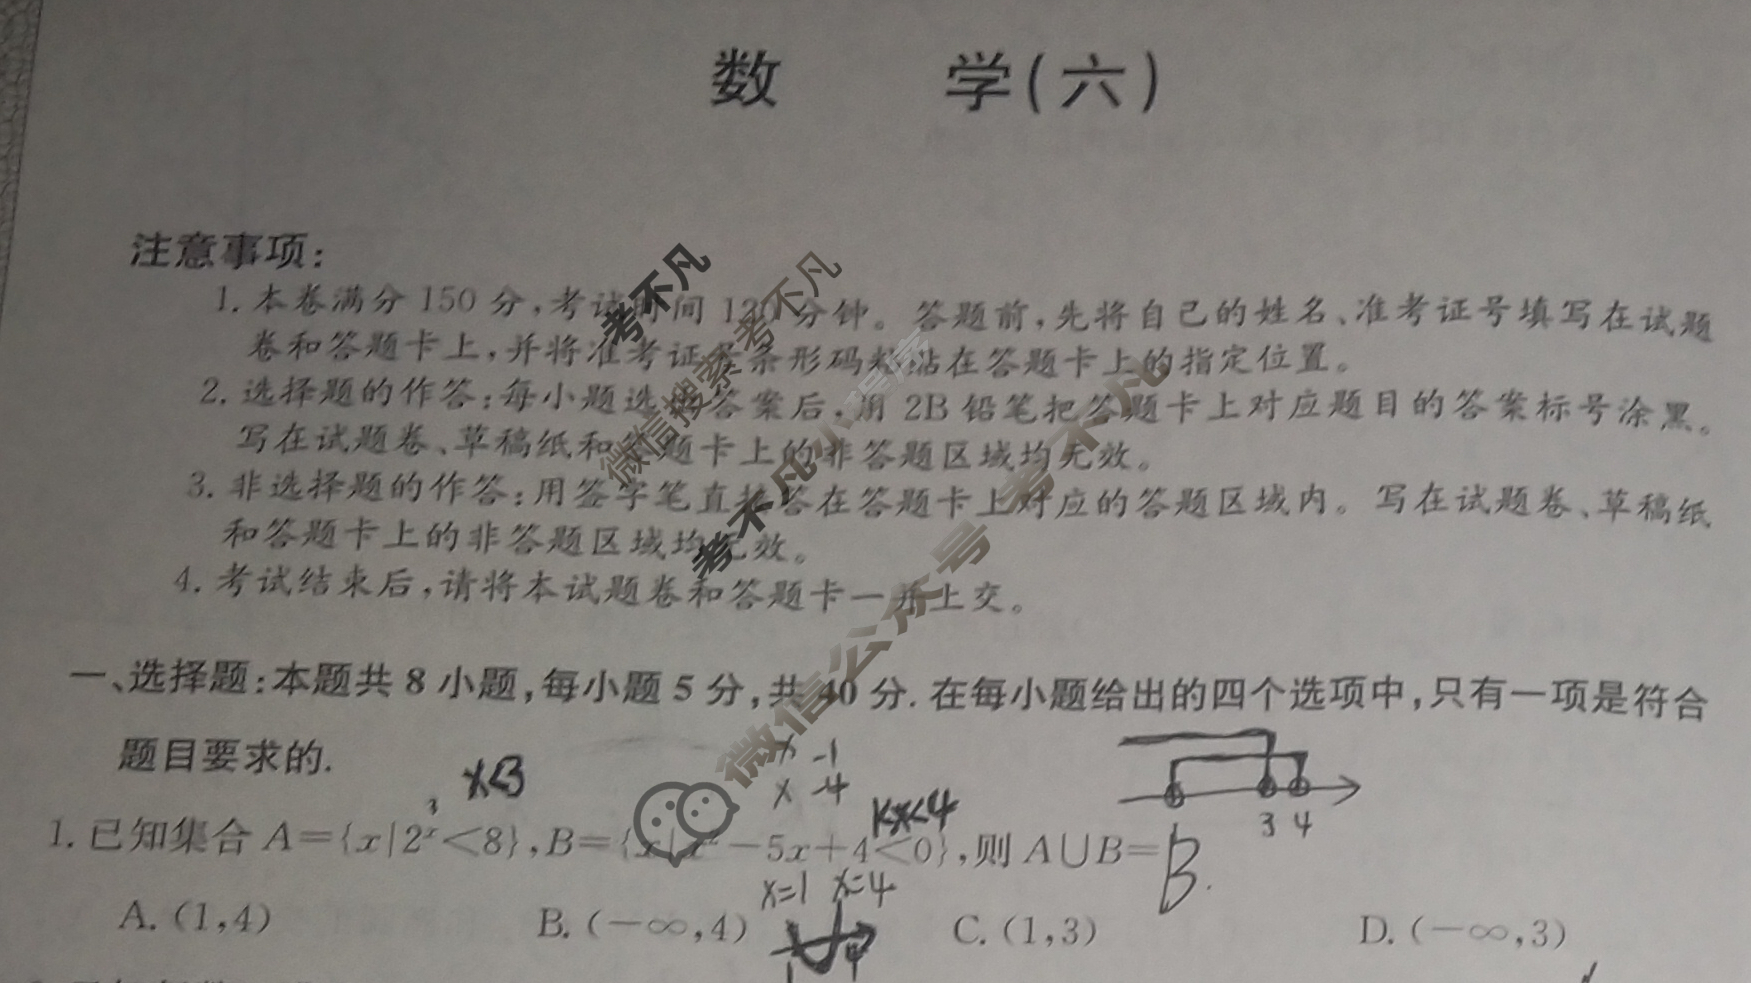 数 学(六)
注意事项:
1. 本卷满分 150 分,考试时间 120 分钟。答题前,先将自己的姓名、准考证号填写在试题
卷和答题卡上,并将准考证号条形码粘贴在答题卡上的指定位置。
2. 选择题的作答:每小题选出答案后,用 2B 铅笔把答题卡上对应题目的答案标号涂黑。
写在试题卷、草稿纸和答题卡上的非答题区域均无效。
3. 非选择题的作答:用签字笔直接答在答题卡上对应的答题区域内。写在试题卷、草稿纸
和答题卡上的非答题区域均无效。
4. 考试结束后,请将本试题卷和答题卡一并上交。
考不凡
微信搜索 考不凡
考不凡小程序
微信公众号 考不凡
一、选择题:本题共 8 小题,每小题 5 分,共 40 分. 在每小题给出的四个选项中,只有一项是符合
题目要求的.
x<3
x -1
x -4
1<x<4
3 4
3
1. 已知集合 A={x|2^x<8},B={x|x²-5x+4<0},则 A∪B= B.
x=1 x=4
A. (1,4) B. (-∞,4) C. (1,3) D. (-∞,3)
1 4